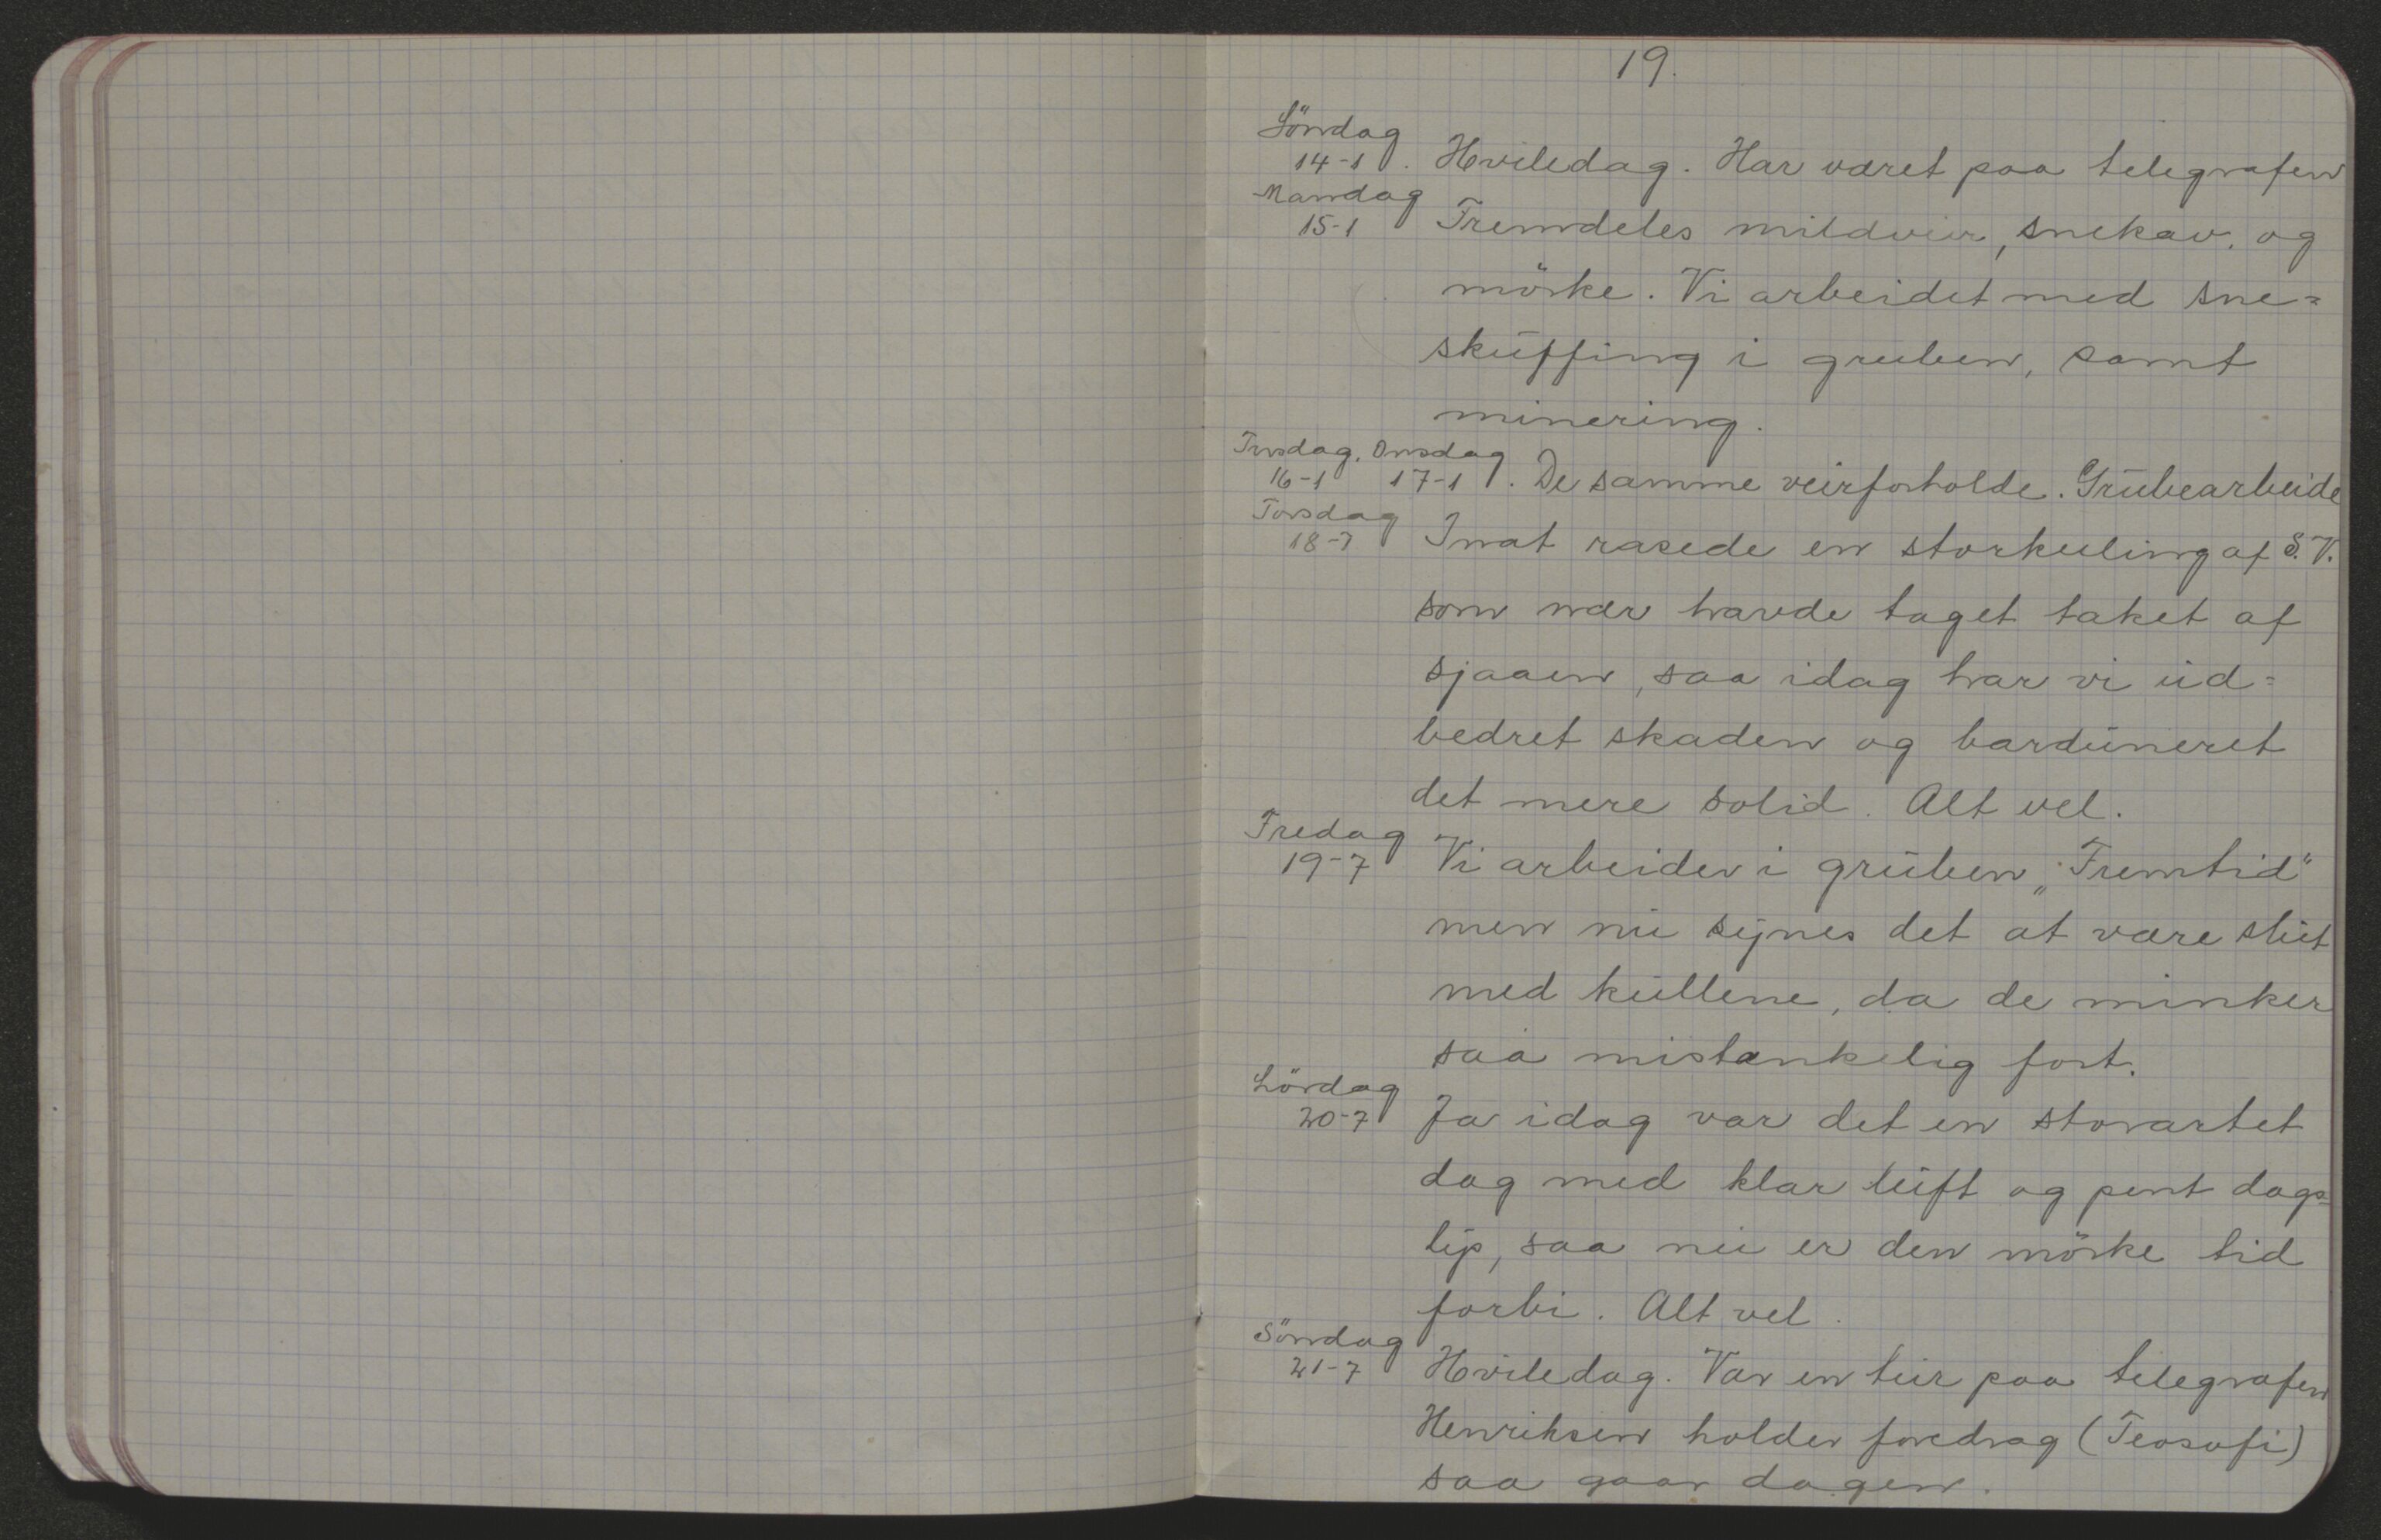 19.
Söndag
14-1. Hviledag. Har været paa telegrafen
Mandag
15-1 Fremdeles mildveir, snekav, og
mörke. Vi arbeidet med sne=
skuffing i gruben, samt
minering.
Tirsdag. Onsdag
16-1 17-1. De samme veirforholde. Grubearbeide
Torsdag
18-7 Inat rasede en storkuling af S.V.
som nær havde taget taket af
sjaaen, saa idag har vi ud=
bedret skaden og barduneret
det mere solid. Alt vel.
Fredag
19-7 Vi arbeider i gruben „Fremtid"
men nu synes det at være slut
med kullene, da de minker
saa mistænkelig fort.
Lördag
20-7 Ja idag var det en storartet
dag med klar luft og pent dags=
lys, saa nu er den mörke tid
forbi. Alt vel.
Söndag
21-7 Hviledag. Var en tur paa telegrafen
Henriksen holder foredrag (Teosofi)
saa gaar dagen.